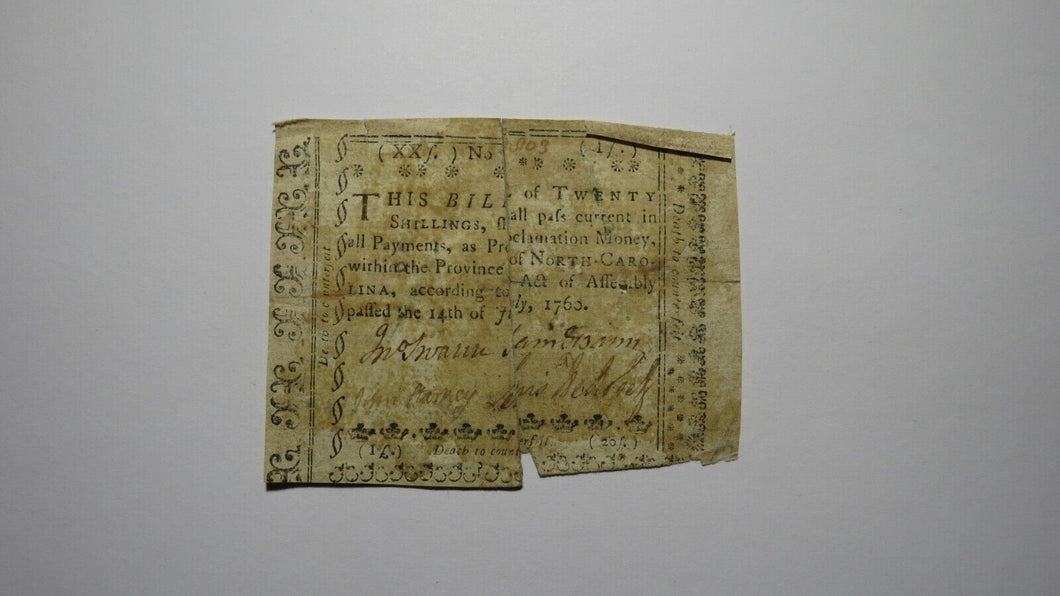 (XXſ.) No 803 (1£.)
THIS BILL of TWENTY
SHILLINGS, ſhall paſs current in
all Payments, as Proclamation Money,
within the Province of NORTH-CARO-
LINA, according to Act of Aſſembly
paſſed the 14th of July, 1760.
Jno Swann Sam
John Lewis
(1£.) Death to counterfeit. (20ſ.)
Death to counterfeit
Death to counterfeit